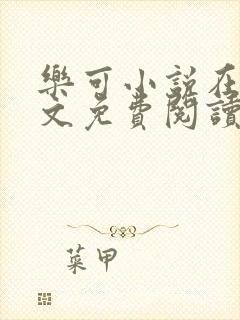 樂可小說在
文免費閱讀
菜甲